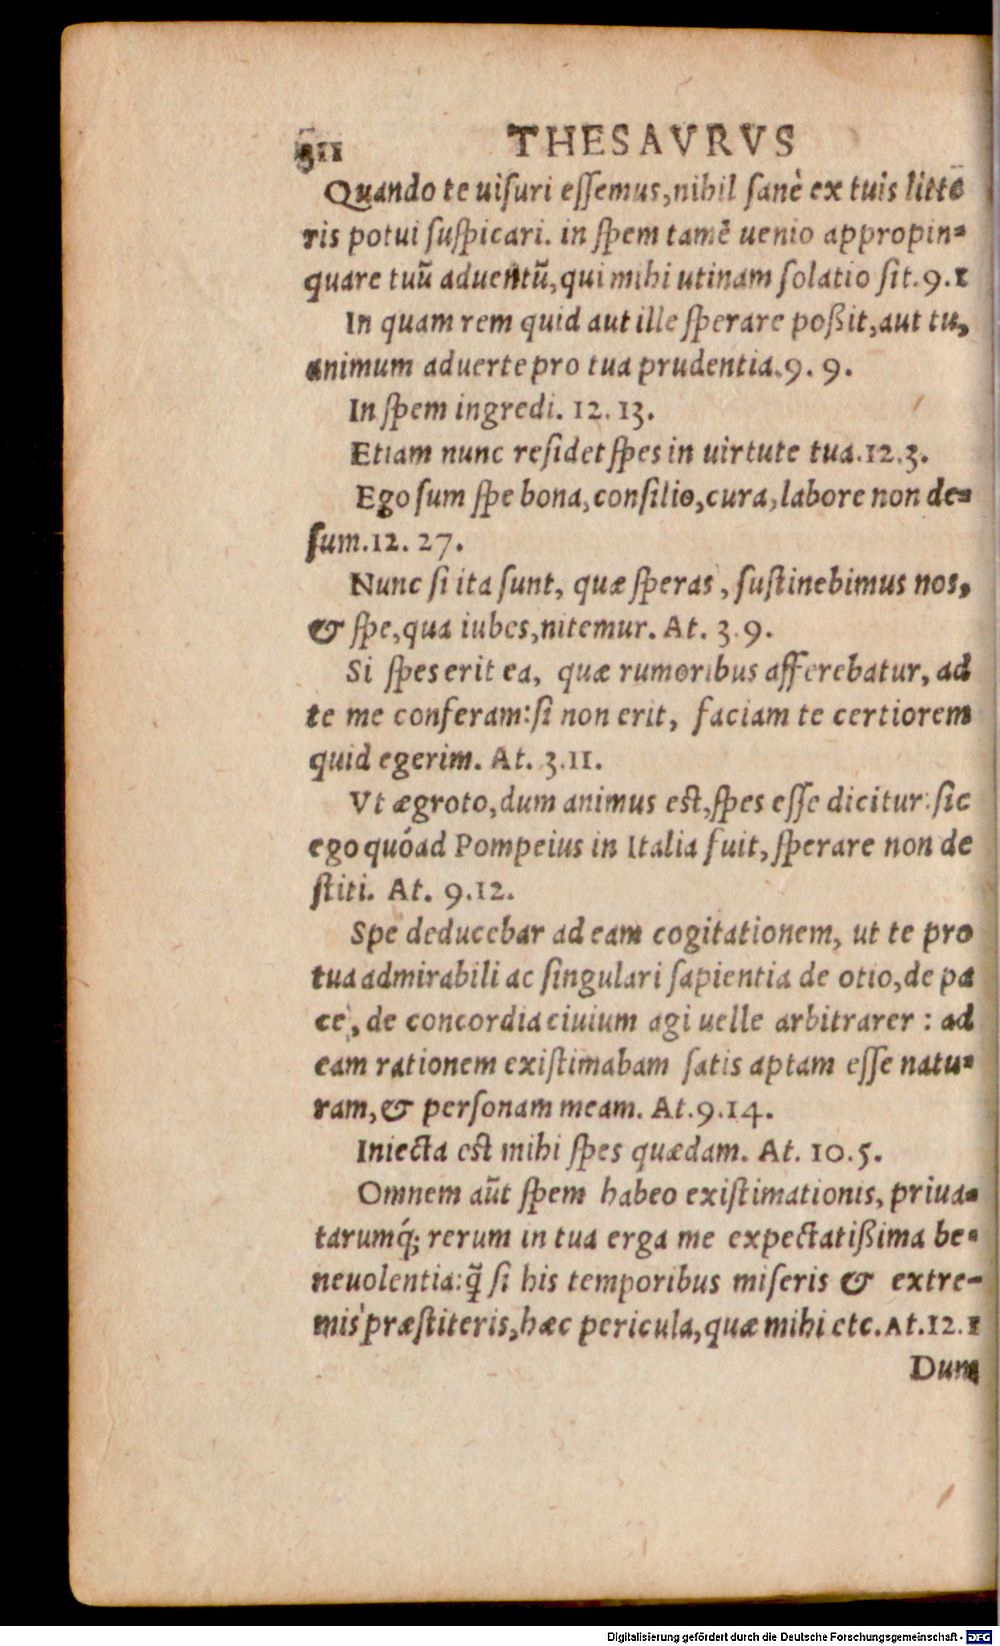 THESAVRVS
Quando te uisuri essemus, nihil sanè ex tuis litte
ris potui suspicari. in spem tamẽ uenio appropin=
quare tuũ aduentũ, qui mihi utinam solatio sit. 9.1
In quam rem quid aut ille sperare poßit, aut tu,
animum aduerte pro tua prudentia. 9. 9.
In spem ingredi. 12. 13.
Etiam nunc residet spes in uirtute tua. 12.3.
Ego sum spe bona, consilio, cura, labore non de=
sum. 12. 27.
Nunc si ita sunt, quæ speras, sustinebimus nos,
& spe, qua iubes, nitemur. At. 3.9.
Si spes erit ea, quæ rumoribus afferebatur, ad
te me conferam: si non erit, faciam te certiorem
quid egerim. At. 3.11.
Vt ægroto, dum animus est, spes esse dicitur: sic
ego quóad Pompeius in Italia fuit, sperare non de
stiti. At. 9.12.
Spe deducebar ad eam cogitationem, ut te pro
tua admirabili ac singulari sapientia de otio, de pa
ce, de concordia ciuium agi uelle arbitrarer : ad
eam rationem existimabam satis aptam esse natu=
ram, & personam meam. At. 9.14.
Iniecta est mihi spes quædam. At. 10.5.
Omnem aũt spem habeo existimationis, priua=
tarumq́; rerum in tua erga me expectatißima be=
neuolentia: q̃ si his temporibus miseris & extre-
mis præstiteris, hæc pericula, quæ mihi etc. At. 12.1
Dum
Digitalisierung gefördert durch die Deutsche Forschungsgemeinschaft - DFG